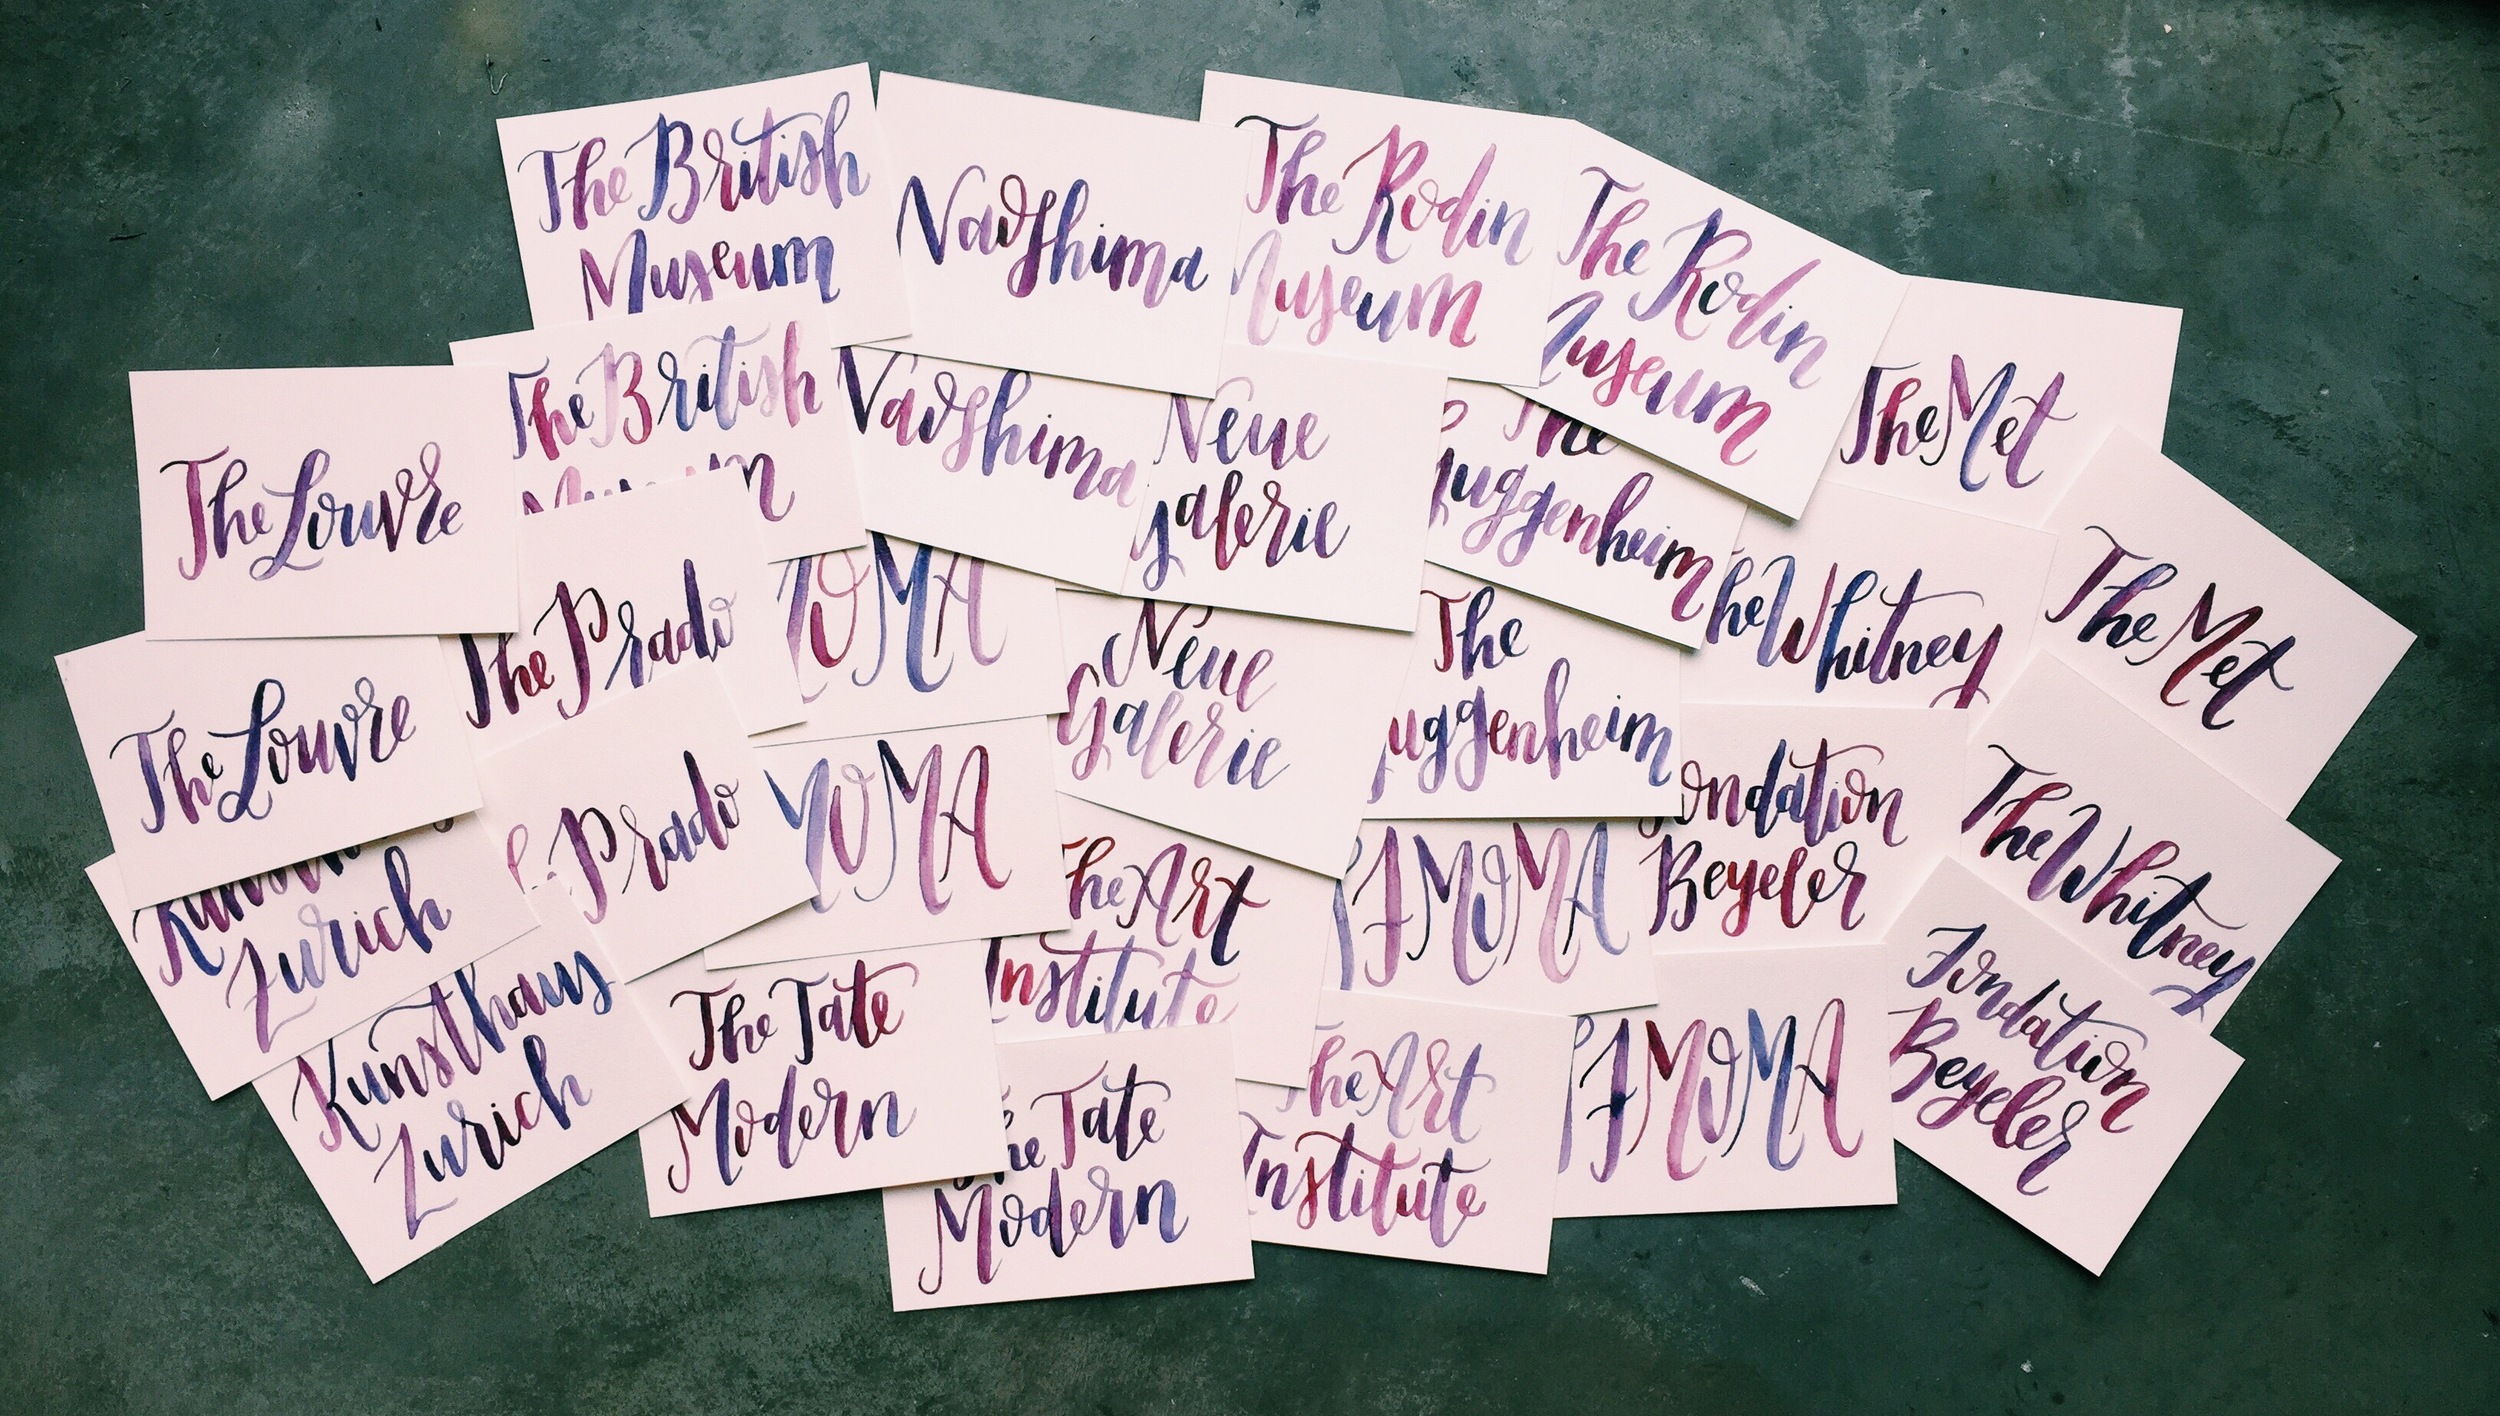 The British
Museum
Naoshima
The Rodin
Museum
The Rodin
Museum
The Met
The British
Museum
Naoshima
Neue
Galerie
The
Guggenheim
The Whitney
The Met
The Louvre
The Prado
MOMA
Neue
Galerie
The
Guggenheim
Fondation
Beyeler
The Whitney
The Louvre
The Prado
MOMA
The Art
Institute
SFMOMA
Fondation
Beyeler
Kunsthaus
Zurich
Kunsthaus
Zurich
The Tate
Modern
The Tate
Modern
The Art
Institute
SFMOMA